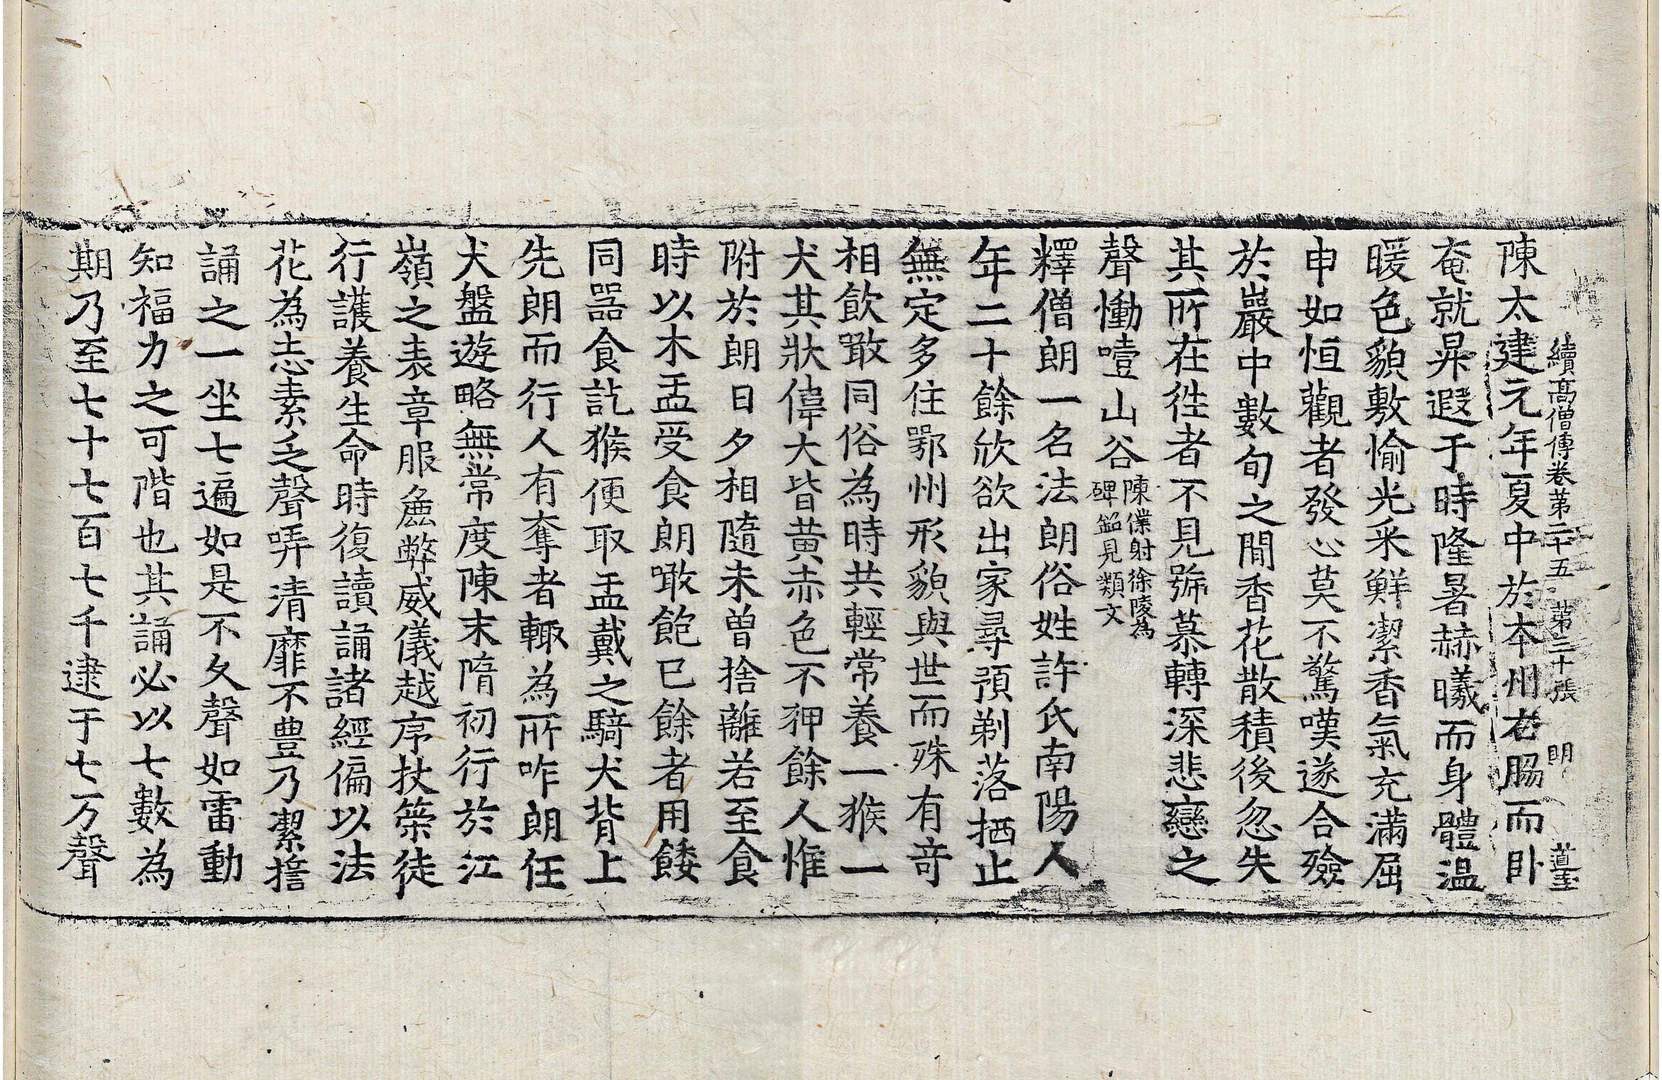 續高僧傳卷第二十五 第三十張 明 道至
陳太建元年夏中於本州右脇而臥
奄就昇遐于時隆暑赫曦而身體溫
暖色貌敷愉光采鮮潔香氣充滿屈
申如恒觀者發心莫不驚嘆遂合殮
於巖中數旬之間香花散積後忽失
其所在徃者不見號慕轉深悲戀之
聲慟噎山谷陳僕射徐陵為
碑銘見類文
釋僧朗一名法朗俗姓許氏南陽人
年二十餘欣欲出家尋預剃落栖止
無定多住鄂州形貌與世而殊有奇
相飲噉同俗為時共輕常養一猴一
犬其狀偉大皆黃赤色不狎餘人惟
附於朗日夕相隨未曾捨離若至食
時以木盂受食朗噉飽已餘者用餧
同器食訖猴便取盂戴之騎犬背上
先朗而行人有奪者輙為所咋朗任
犬盤遊略無常度陳末隋初行於江
嶺之表章服麁弊威儀越序扶䇿徒
行護養生命時復讀誦諸經偏以法
花為志素乏聲哢清靡不豊乃潔誓
誦之一坐七遍如是不久聲如雷動
知福力之可階也其誦必以七數為
期乃至七十七百七千逮于七万聲